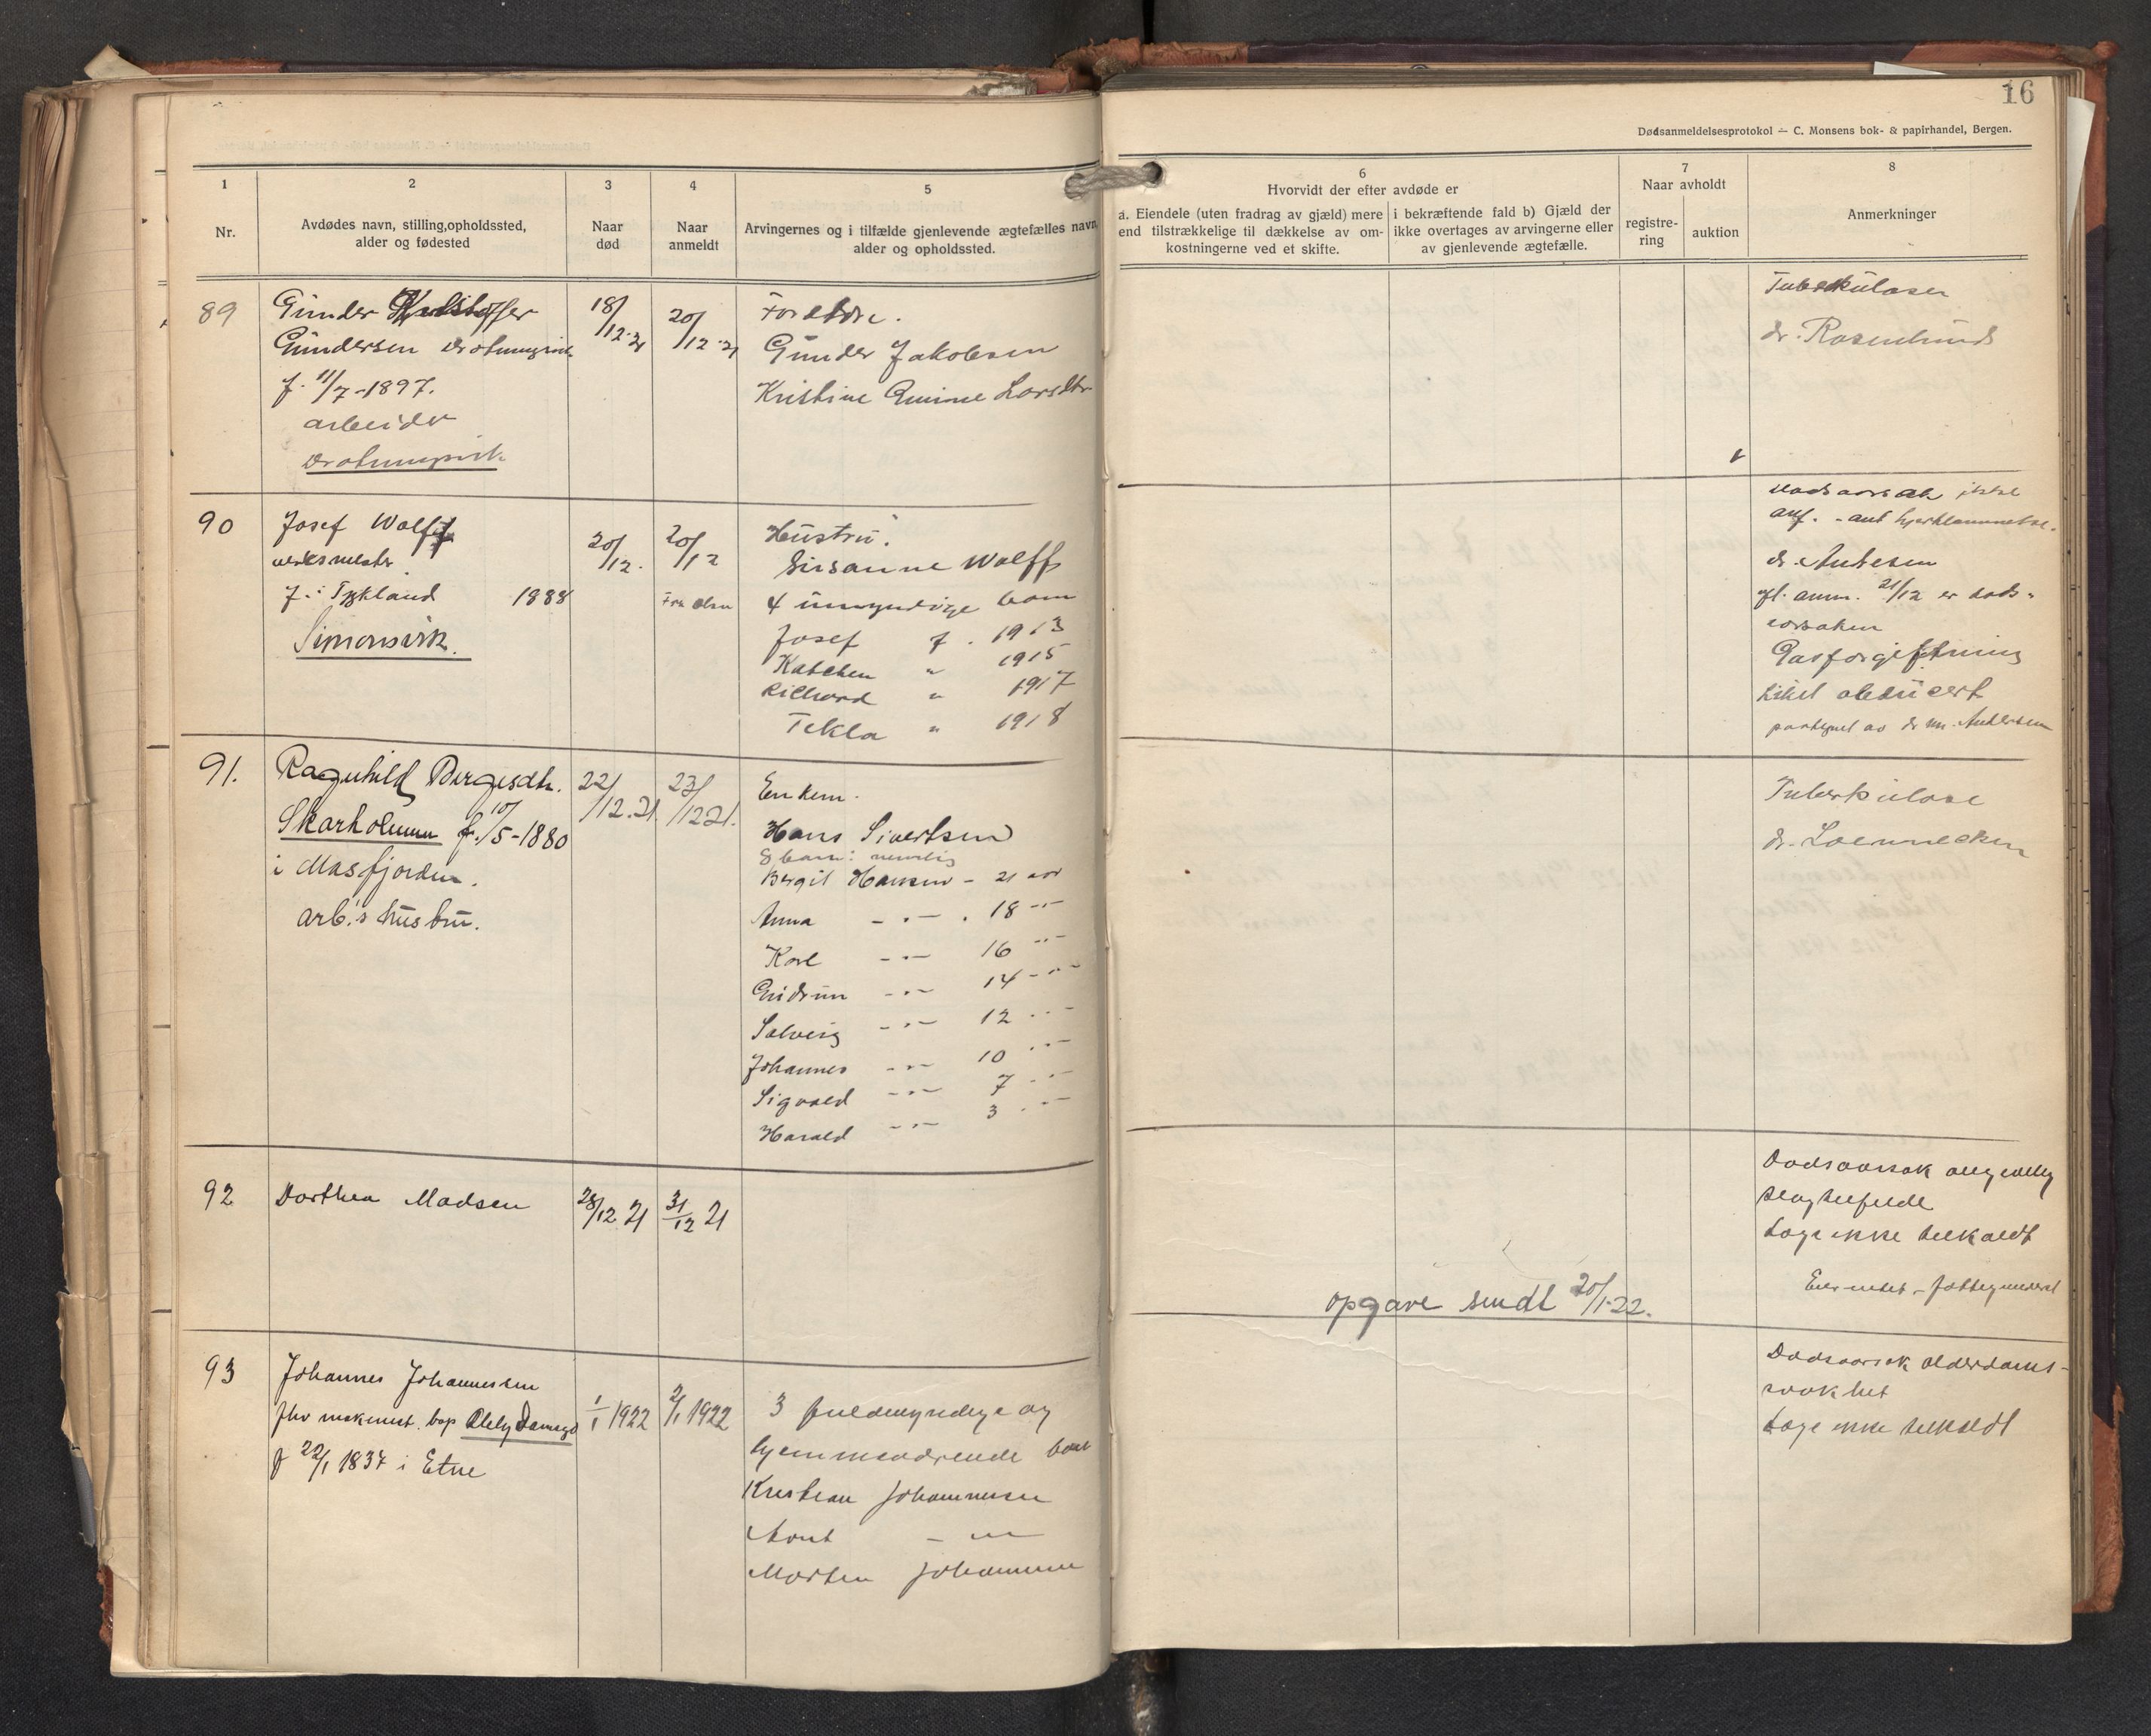 16
Dødsanmeldelsesprotokol — C. Monsens bok- & papirhandel, Bergen.
1
Nr.
2
Avdødes navn, stilling, opholdssted,
alder og fødested
3
Naar
død
4
Naar
anmeldt
5
Arvingernes og i tilfælde gjenlevende ægtefælles navn,
alder og opholdssted.
6
Hvorvidt der efter avdøde er
a. Eiendele (uten fradrag av gjæld) mere
end tilstrækkelige til dækkelse av om-
kostningerne ved et skifte.
i bekræftende fald b) Gjæld der
ikke overtages av arvingerne eller
av gjenlevende ægtefælle.
7
Naar avholdt
registre-
ring
auktion
8
Anmerkninger
89
Gunder Kristoffer
Gundersen
f. 11/7-1897.
arbeider
18/12-21
20/12-21
Forældre.
Gunder Jakobsen
Kristine Larsdtr
Tuberkulosen
dr.
90
Josef Wolff
verksmester
f. i Tyskland 1888
Simonsvik.
20/12.
20/12
Fru Olsen
Hustru:
Susanne Wolff
4 umyndige barn
Josef f. 1913
Katchen " 1915
Rikhard " 1917
Tekla " 1918
Dødsaarsak ikke
anf. - ant hjertelammelse.
dr.
gl. anm. 21/12 er døds-
aarsaken
Gasforgiftning
Liket obducert
91.
Ragnhild Børgesdtr.
Skarholmen f. 10/5-1880
i Masfjorden.
arb.'s hustru.
22/12.21.
23/12 21.
Enkem.
Hans Sivertsen
8 barn: nemlig
Bergit Hansen - 21 aar
Anna -"- 18 -"-
Karl -"- 16 -"-
Gudrun -"- 14 -"-
Solveig -"- 12 -"-
Johannes -"- 10 -"-
Sigvald -"- 7 -"-
Harald -"- 3 -"-
Tuberkulose
dr. Loennecken
92
Dorthea Madsen
28/12 21
31/12 21
opgave sendt 20/1-22.
Dødsaarsak
slagtilfelde
Læge ikke tilkaldt
93
Johannes Johannessen
fhv maskinist. bop Damsgd
f 22/1 1837 i Etne
1/1 1922
2/1 1922
3 fuldmyndige og
hjemmeværende barn
Kristian Johannessen
Knut - " -
Morten Johannessen
Dødsaarsak alderdoms-
svakhet
Læge ikke tilkaldt